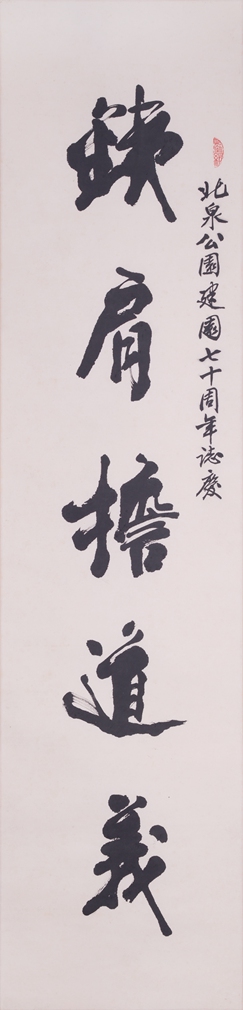 北泉公園建園七十周年誌慶
鉄肩擔道義